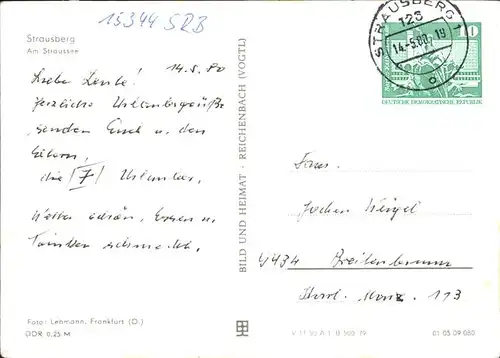 15344 SRB
Strausberg
Am Straussee
14.5.80
Liebe Leute!
Herzliche Urlaubsgrüße
senden Euch u. den
Eltern,
die 7 Urlauber.
Wetter schön, Essen u.
Trinken schmeckt.
Foto: Lehmann, Frankfurt (O.)
DDR 0,25 M
BILD UND HEIMAT · REICHENBACH (VOGTL)
STRAUSBERG 1
126
14.-5.80.-19
10
DEUTSCHE DEMOKRATISCHE REPUBLIK
Fam.
Jochen Weigel
9434 Breitenbrunn
113
01 05 09 080